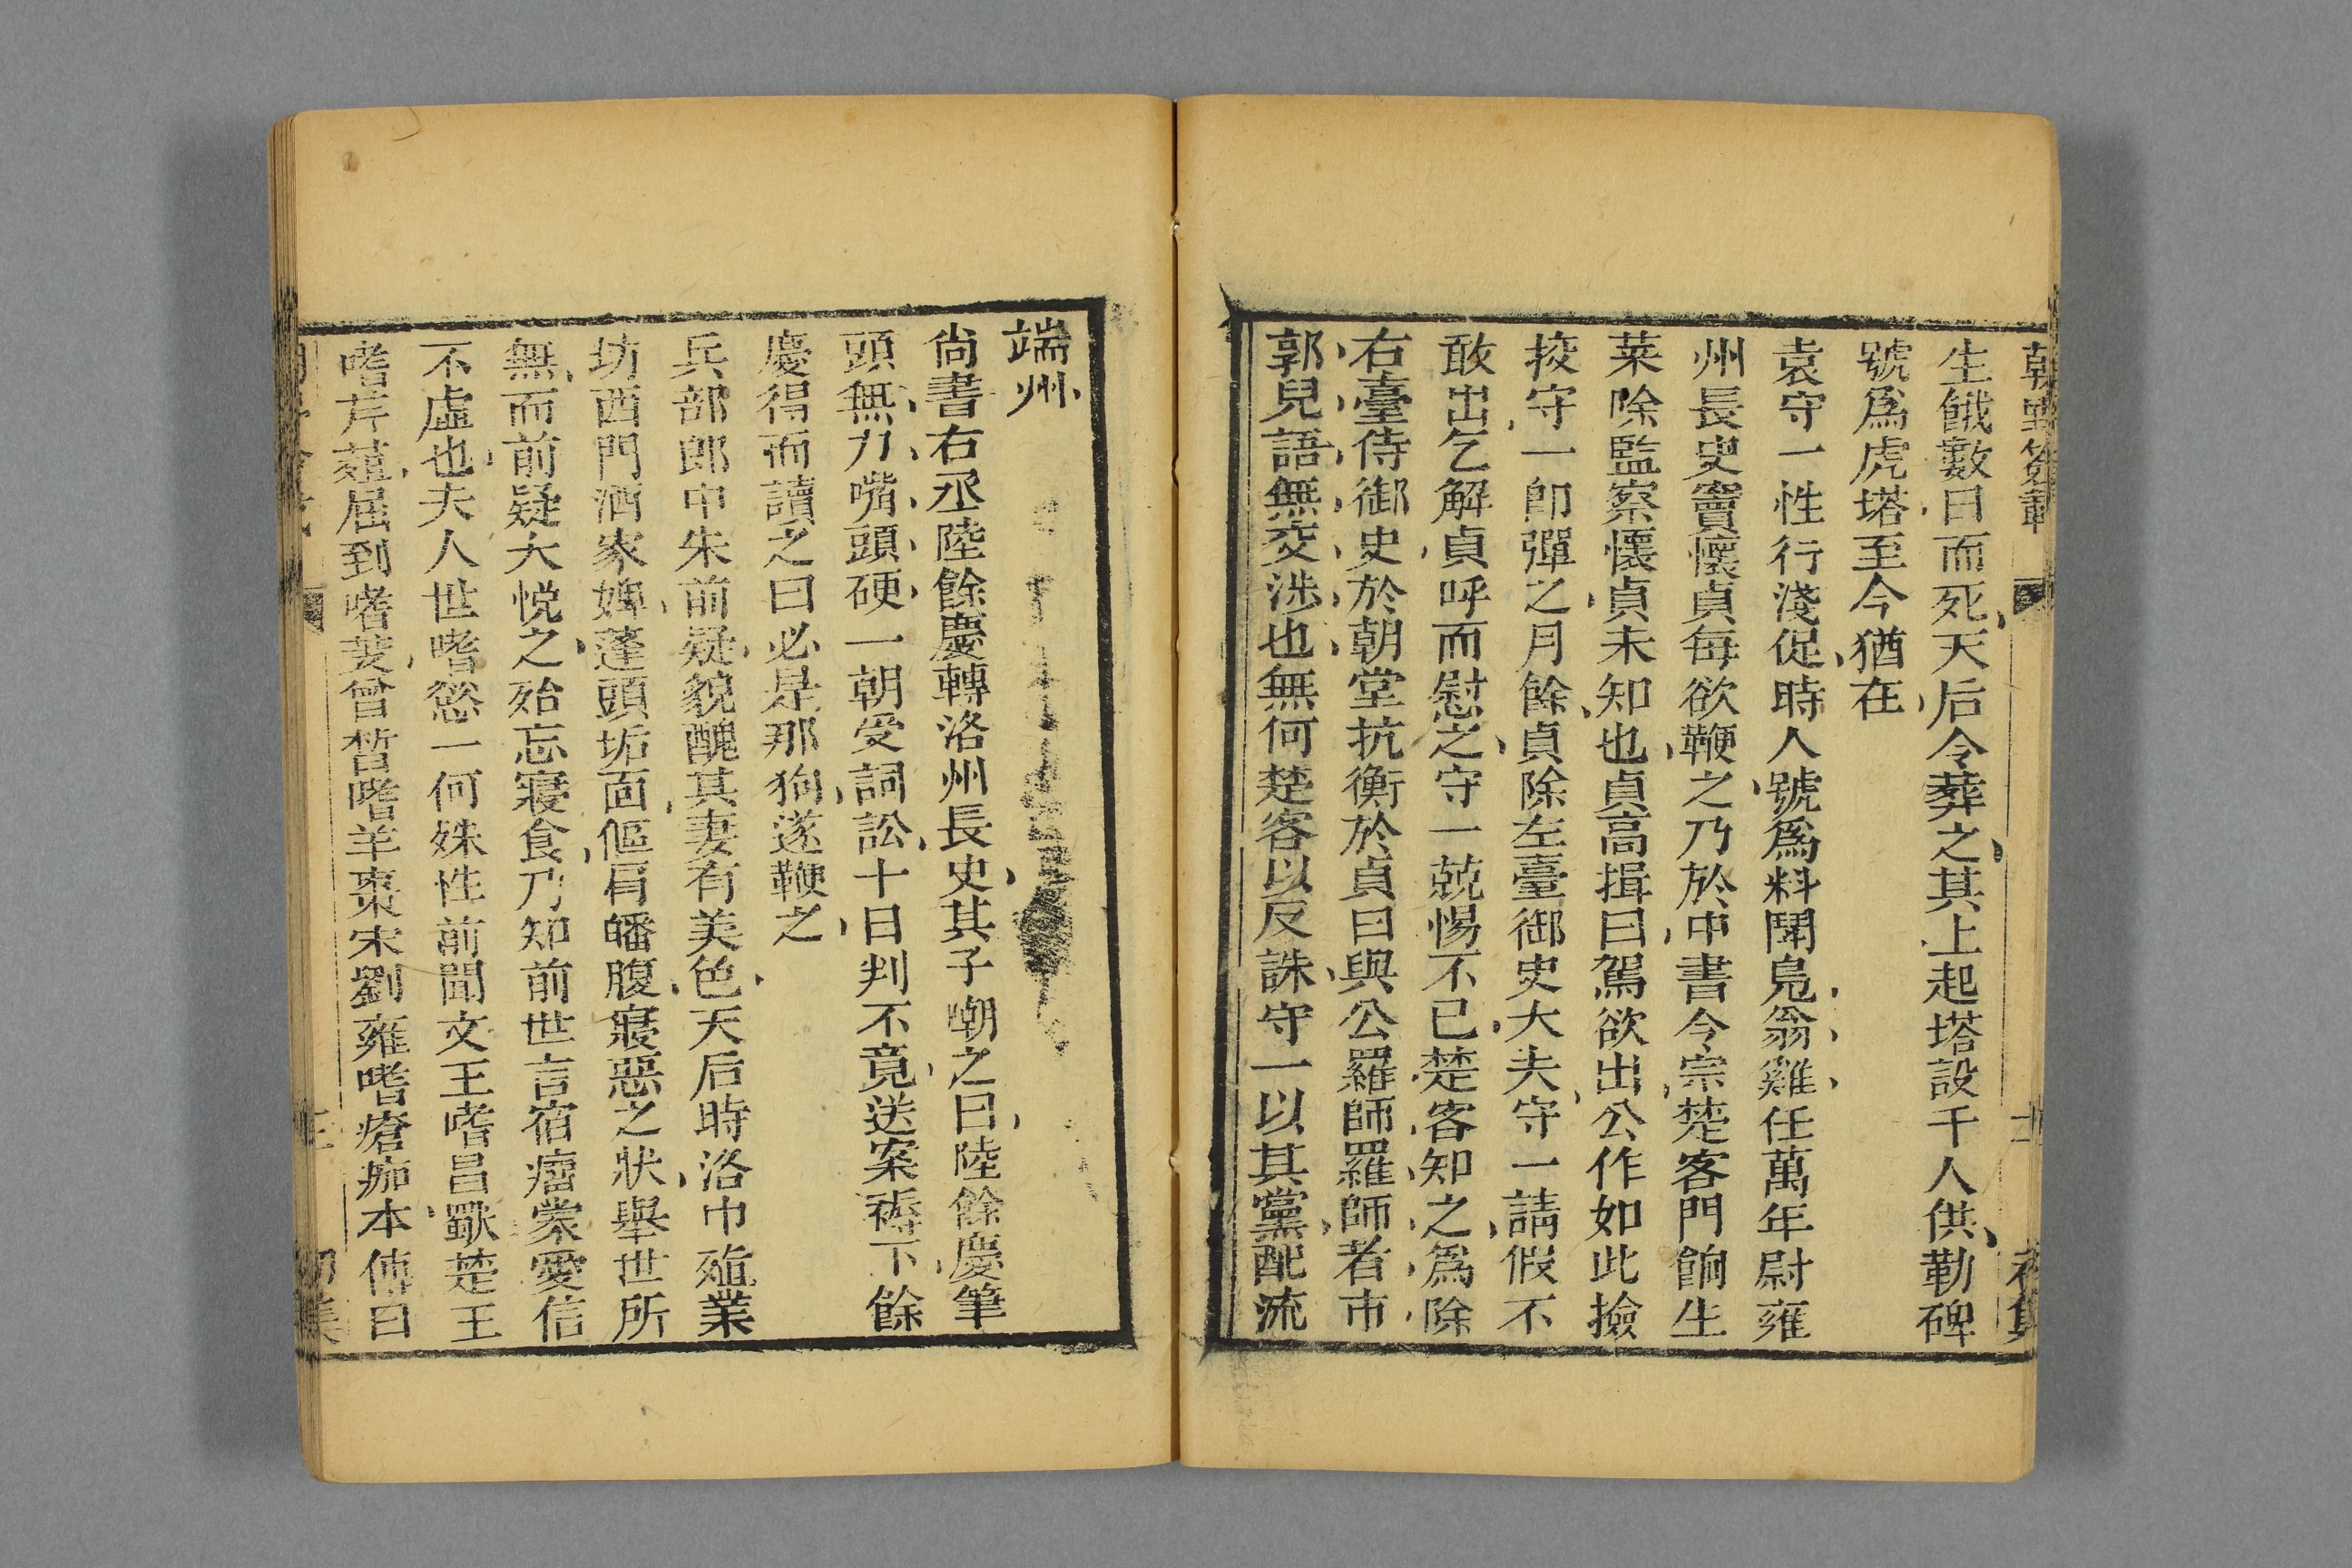 朝野僉載
生餓數日而死天后令葬之其上起塔設千人供勒碑
號爲虎塔至今猶在
袁守一性行淺促時人號爲料鬪鳧翁雞任萬年尉雍
州長史竇懷貞每欲鞭之乃於中書令宗楚客門餉生
菜除監察懷貞未知也貞高揖曰駕欲出公作如此撿
挍守一卽彈之月餘貞除左臺御史大夫守一請假不
敢出乞解貞呼而慰之守一兢惕不已楚客知之爲除
右臺侍御史於朝堂抗衡於貞曰與公羅師羅師者市
郭兒語無交涉也無何楚客以反誅守一以其黨配流
端州
尚書右丞陸餘慶轉洛州長史其子嘲之曰陸餘慶筆
頭無力嘴頭硬一朝受詞訟十日判不竟送案褥下餘
慶得而讀之曰必是那狗遂鞭之
兵部郎中朱前疑貌醜其妻有美色天后時洛中殖業
坊西門酒家婢蓬頭垢面傴肩皤腹寢惡之狀舉世所
無而前疑大悅之殆忘寢食乃知前世言宿瘤蒙愛信
不虛也夫人世嗜慾一何殊性前聞文王嗜昌歜楚王
嗜芹葅屈到嗜芰曾晳嗜羊棗宋劉雍嗜瘡痂本傳曰